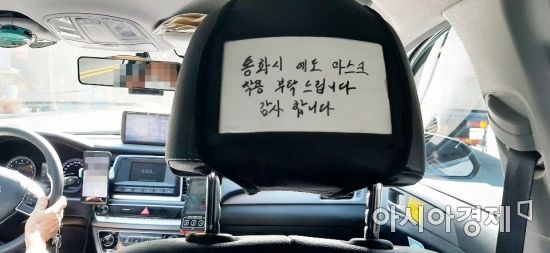 통화시 에도 마스크
착용 부탁 드립니다
감사 합니다
아시아경제